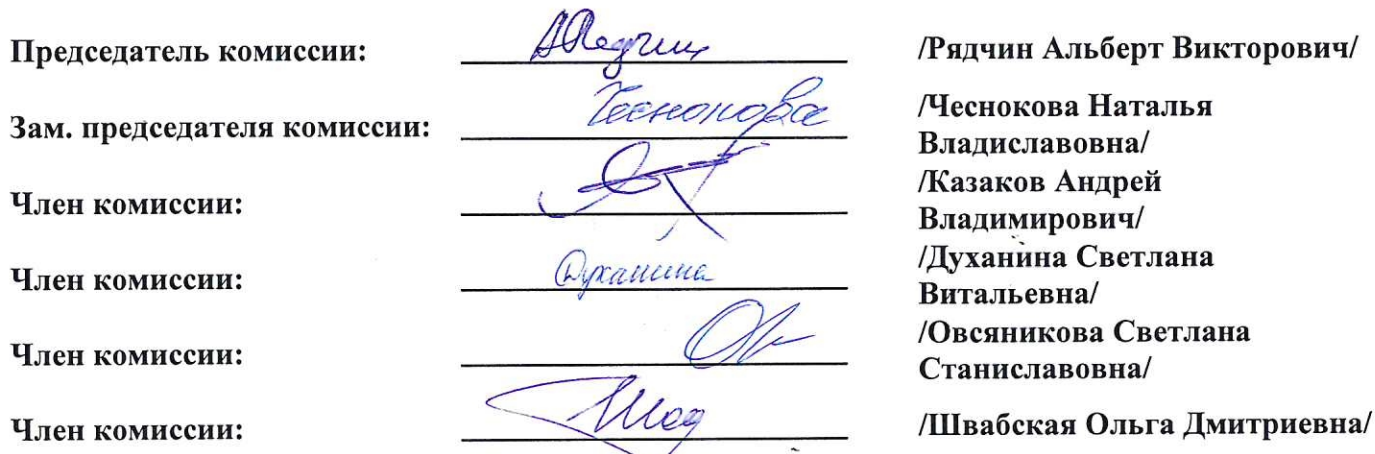 Председатель комиссии: /Рядчин Альберт Викторович/
Зам. председателя комиссии: Чеснокова /Чеснокова Наталья
Владиславовна/
Член комиссии: /Казаков Андрей
Владимирович/
Член комиссии: Духанина /Духанина Светлана
Витальевна/
Член комиссии: /Овсяникова Светлана
Станиславовна/
Член комиссии: /Швабская Ольга Дмитриевна/